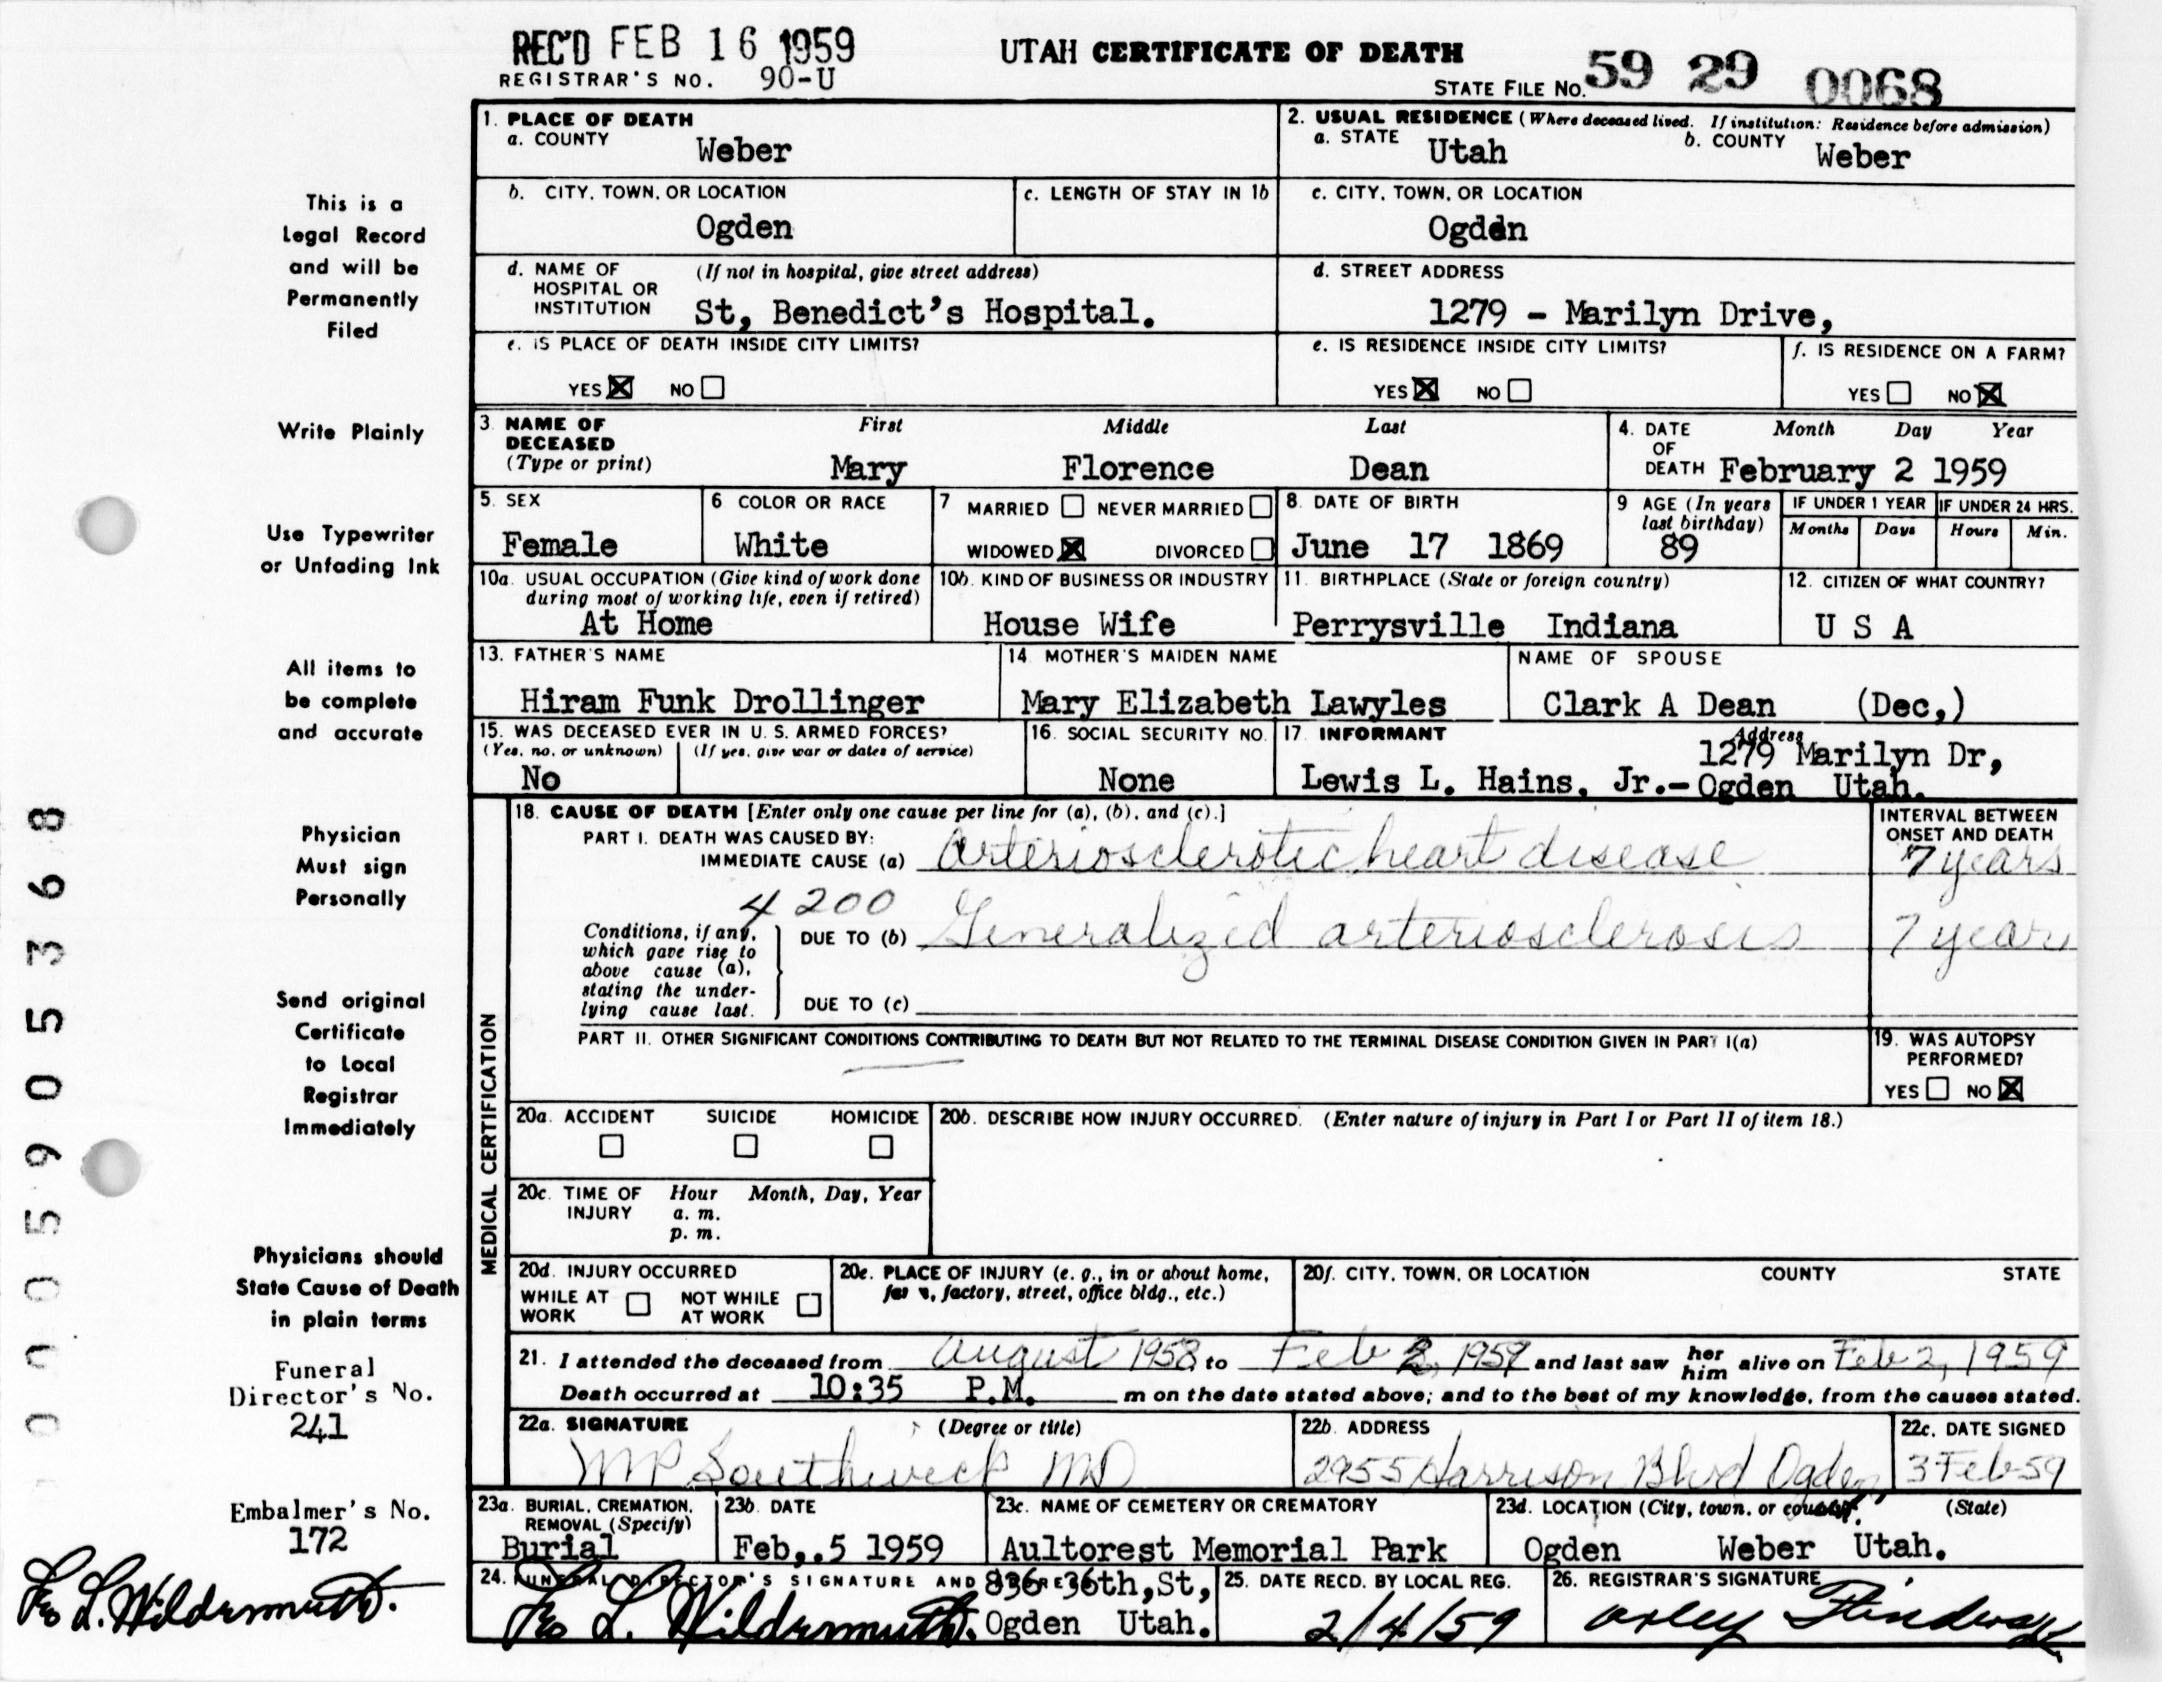 REC'D FEB 16 1959
UTAH CERTIFICATE OF DEATH
REGISTRAR'S NO. 90-U
STATE FILE NO. 59 29 0068
1. PLACE OF DEATH
a. COUNTY Weber
2. USUAL RESIDENCE (Where deceased lived. If institution: Residence before admission)
a. STATE Utah b. COUNTY Weber
b. CITY, TOWN, OR LOCATION Ogden
c. LENGTH OF STAY IN 1b
c. CITY, TOWN, OR LOCATION Ogden
d. NAME OF HOSPITAL OR INSTITUTION (If not in hospital, give street address)
St, Benedict's Hospital.
d. STREET ADDRESS
1279 - Marilyn Drive,
e. IS PLACE OF DEATH INSIDE CITY LIMITS?
YES ☒ NO ☐
e. IS RESIDENCE INSIDE CITY LIMITS?
YES ☒ NO ☐
f. IS RESIDENCE ON A FARM?
YES ☐ NO ☒
3. NAME OF DECEASED (Type or print)
First Middle Last
Mary Florence Dean
4. DATE OF DEATH Month Day Year
February 2 1959
5. SEX
Female
6 COLOR OR RACE
White
7 MARRIED ☐ NEVER MARRIED ☐
WIDOWED ☒ DIVORCED ☐
8. DATE OF BIRTH
June 17 1869
9 AGE (In years last birthday)
89
IF UNDER 1 YEAR
Months Days
IF UNDER 24 HRS.
Hours Min.
10a. USUAL OCCUPATION (Give kind of work done during most of working life, even if retired)
At Home
10b. KIND OF BUSINESS OR INDUSTRY
House Wife
11. BIRTHPLACE (State or foreign country)
Perrysville Indiana
12. CITIZEN OF WHAT COUNTRY?
U S A
13. FATHER'S NAME
Hiram Funk Drollinger
14 MOTHER'S MAIDEN NAME
Mary Elizabeth Lawyles
NAME OF SPOUSE
Clark A Dean (Dec,)
15. WAS DECEASED EVER IN U. S. ARMED FORCES?
(Yes, no, or unknown) (If yes, give war or dates of service)
No
16. SOCIAL SECURITY NO.
None
17. INFORMANT Address
1279 Marilyn Dr,
Lewis L. Hains, Jr.- Ogden Utah.
MEDICAL CERTIFICATION
18. CAUSE OF DEATH [Enter only one cause per line for (a), (b), and (c).]
INTERVAL BETWEEN ONSET AND DEATH
PART I. DEATH WAS CAUSED BY:
IMMEDIATE CAUSE (a) Arteriosclerotic heart disease 7 years
4200
Conditions, if any, which gave rise to above cause (a), stating the underlying cause last.
DUE TO (b) Generalized arteriosclerosis 7 years
DUE TO (c)
PART II. OTHER SIGNIFICANT CONDITIONS CONTRIBUTING TO DEATH BUT NOT RELATED TO THE TERMINAL DISEASE CONDITION GIVEN IN PART I(a)
19. WAS AUTOPSY PERFORMED?
YES ☐ NO ☒
20a. ACCIDENT SUICIDE HOMICIDE
☐ ☐ ☐
20b. DESCRIBE HOW INJURY OCCURRED. (Enter nature of injury in Part I or Part II of item 18.)
20c. TIME OF INJURY Hour Month, Day, Year
a. m.
p. m.
20d. INJURY OCCURRED
WHILE AT WORK ☐ NOT WHILE AT WORK ☐
20e. PLACE OF INJURY (e. g., in or about home, farm, factory, street, office bldg., etc.)
20f. CITY, TOWN, OR LOCATION COUNTY STATE
21. I attended the deceased from August 1958 to Feb 2, 1959 and last saw her him alive on Feb 2, 1959
Death occurred at 10:35 P.M. m on the date stated above; and to the best of my knowledge, from the causes stated.
22a. SIGNATURE (Degree or title)
MP Southwick MD
22b. ADDRESS
2955 Harrison Blvd Ogden
22c. DATE SIGNED
3 Feb 59
23a. BURIAL, CREMATION, REMOVAL (Specify)
Burial
23b. DATE
Feb,.5 1959
23c. NAME OF CEMETERY OR CREMATORY
Aultorest Memorial Park
23d. LOCATION (City, town, or county) (State)
Ogden Weber Utah.
24. FUNERAL DIRECTOR'S SIGNATURE AND ADDRESS
836-36th,St,
L. Wildermuth. Ogden Utah.
25. DATE RECD. BY LOCAL REG.
2/4/59
26. REGISTRAR'S SIGNATURE
This is a
Legal Record
and will be
Permanently
Filed
Write Plainly
Use Typewriter
or Unfading Ink
All items to
be complete
and accurate
Physician
Must sign
Personally
Send original
Certificate
to Local
Registrar
Immediately
Physicians should
State Cause of Death
in plain terms
Funeral
Director's No.
241
Embalmer's No.
172
L. Wildermuth.
0005905368